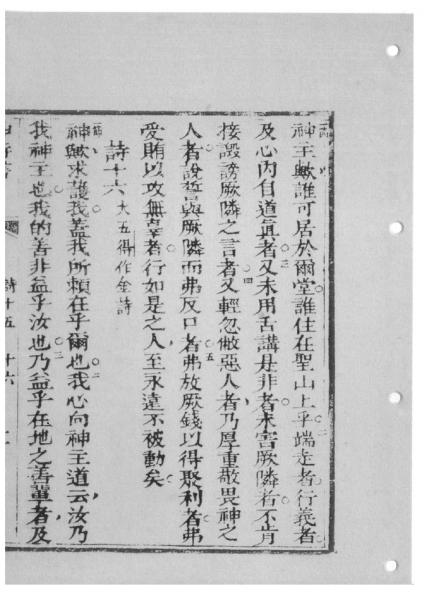 神主歟誰可居於爾堂誰住在聖山上乎端走者行義者
及心內自道眞者又未用舌講是非者未害厥隣者不肯
接毀謗厥隣之言者又輕忽做惡人者乃厚重敬畏神之
人者說誓與厥隣而弗反口者弗放厥錢以得聚利者弗
愛賄以攻無辜者行如是之人至永遠不被動矣
詩十六 大五得作金詩
神歟求護我蓋我所賴在乎爾也我心向神主道云汝乃
我神主也我的善非益乎汝也乃益乎在地之善輩者及
詩十五 十六